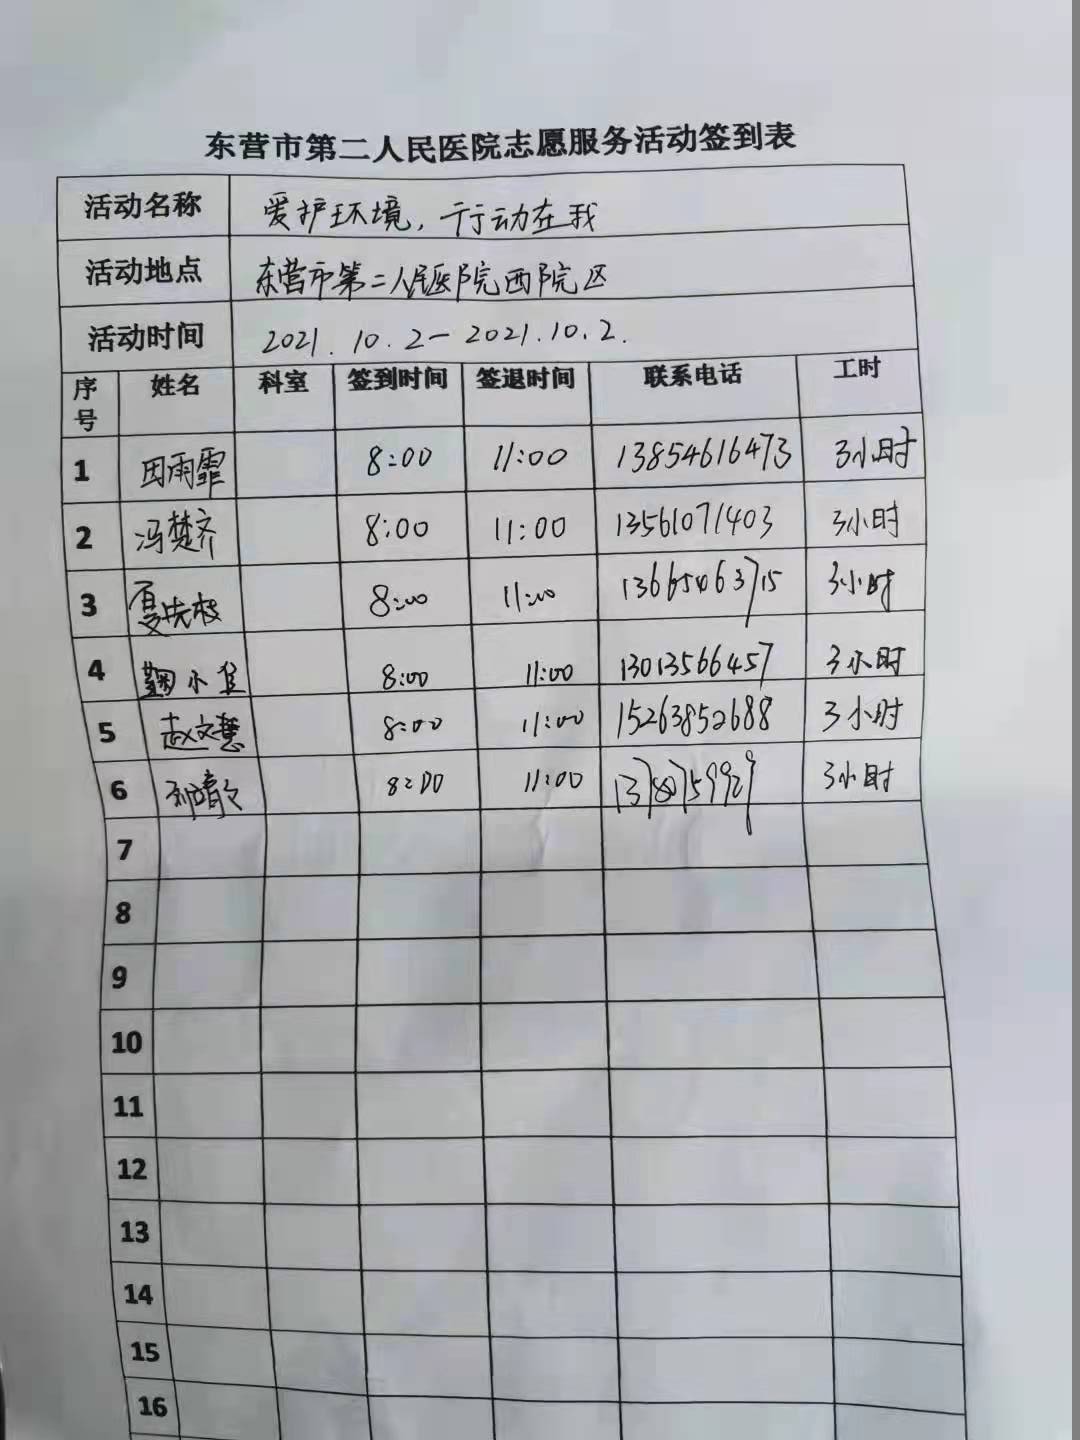 东营市第二人民医院志愿服务活动签到表
活动名称 爱护环境，行动在我
活动地点 东营市第二人民医院西院区
活动时间 2021.10.2-2021.10.2.
序号 姓名 科室 签到时间 签退时间 联系电话 工时
1 田雨霏 8:00 11:00 13854616473 3小时
2 冯楚齐 8:00 11:00 13561071403 3小时
3 8:00 11:00 13665463715 3小时
4 鞠小 8:00 11:00 13013566457 3小时
5 赵文慧 8:00 11:00 15263852688 3小时
6 8:00 11:00 3小时
7
8
9
10
11
12
13
14
15
16